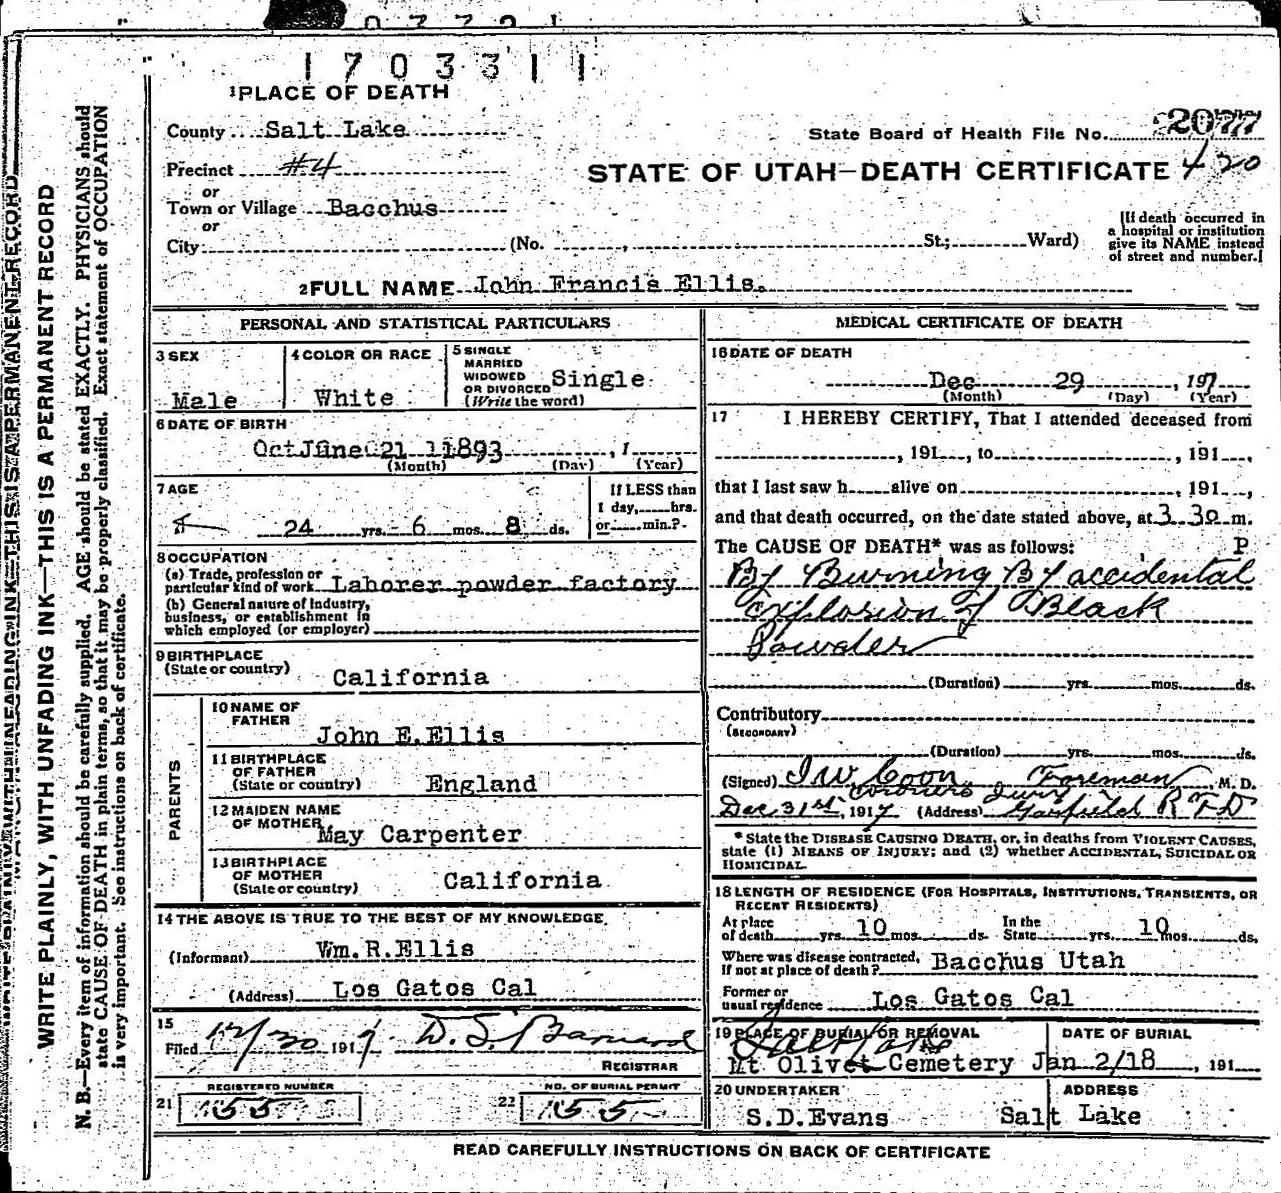 1703311
1 PLACE OF DEATH
County Salt Lake
State Board of Health File No. 2077
Precinct #4
STATE OF UTAH—DEATH CERTIFICATE 420
or
Town or Village Bacchus
or
City (No. , St.; Ward)
[If death occurred in
a hospital or institution
give its NAME instead
of street and number.]
2 FULL NAME John Francis Ellis.
PERSONAL AND STATISTICAL PARTICULARS
3 SEX
Male
4 COLOR OR RACE
White
5 SINGLE
MARRIED
WIDOWED
OR DIVORCED
(Write the word)
Single
6 DATE OF BIRTH
June 21 1893 , 1
(Month) (Day) (Year)
7 AGE
24 yrs. 6 mos. 8 ds.
If LESS than
1 day, hrs.
or min.?
8 OCCUPATION
(a) Trade, profession or
particular kind of work Laborer powder factory
(b) General nature of industry,
business, or establishment in
which employed (or employer)
9 BIRTHPLACE
(State or country) California
PARENTS
10 NAME OF
FATHER
John E. Ellis
11 BIRTHPLACE
OF FATHER
(State or country) England
12 MAIDEN NAME
OF MOTHER May Carpenter
13 BIRTHPLACE
OF MOTHER
(State or country) California
14 THE ABOVE IS TRUE TO THE BEST OF MY KNOWLEDGE.
(Informant) Wm. R. Ellis
(Address) Los Gatos Cal
15
Filed 12/30 1917. D. S. Barnard
REGISTRAR
REGISTERED NUMBER
21 55
NO. OF BURIAL PERMIT
22 55
MEDICAL CERTIFICATE OF DEATH
16 DATE OF DEATH
Dec 29 , 197
(Month) (Day) (Year)
17 I HEREBY CERTIFY, That I attended deceased from
, 191 , to , 191 ,
that I last saw h alive on , 191 ,
and that death occurred, on the date stated above, at 3.30 m.
The CAUSE OF DEATH* was as follows: P
By Burning By accidental
explosion of Black
Powder
(Duration) yrs. mos. ds.
Contributory
(SECONDARY)
(Duration) yrs. mos. ds.
(Signed) I W Coon Foreman M. D.
coroners Jury
Dec. 31st, 1917 (Address) Garfield R F D
* State the DISEASE CAUSING DEATH, or, in deaths from VIOLENT CAUSES,
state (1) MEANS OF INJURY; and (2) whether ACCIDENTAL, SUICIDAL OR
HOMICIDAL.
18 LENGTH OF RESIDENCE (FOR HOSPITALS, INSTITUTIONS, TRANSIENTS, OR
RECENT RESIDENTS)
At place
of death yrs. 10 mos. ds.
In the
State yrs. 10 mos. ds.
Where was disease contracted,
if not at place of death? Bacchus Utah
Former or
usual residence Los Gatos Cal
19 PLACE OF BURIAL OR REMOVAL
Mt Olivet Cemetery
DATE OF BURIAL
Jan 2/18 , 191
20 UNDERTAKER
S. D. Evans
ADDRESS
Salt Lake
READ CAREFULLY INSTRUCTIONS ON BACK OF CERTIFICATE
WRITE PLAINLY, WITH UNFADING INK—THIS IS A PERMANENT RECORD
N. B.—Every item of information should be carefully supplied. AGE should be stated EXACTLY. PHYSICIANS should
state CAUSE OF DEATH in plain terms, so that it may be properly classified. Exact statement of OCCUPATION
is very important. See instructions on back of certificate.